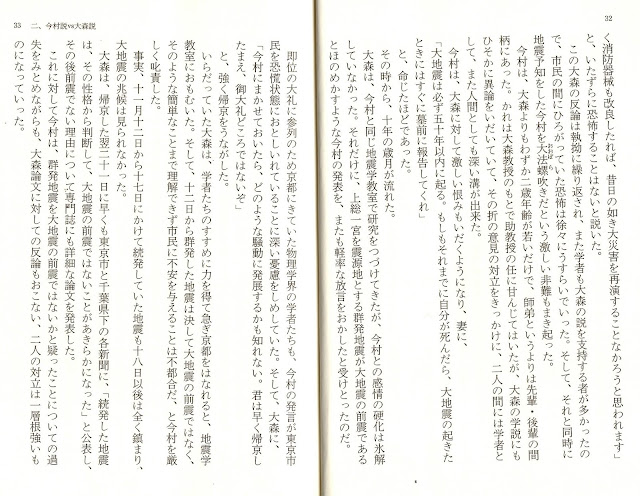 32
く消防器械も改良したれば、昔日の如き大災害を再演することなかろうと思われます」
と、いたずらに恐怖することはないと説いた。
この大森の反論は執拗に繰り返され、また学者も大森の説を支持する者が多かったの
で、市民の間にひろがっていた恐怖は徐々にうすらいでいった。そして、それと同時に
地震予知をした今村を大法螺吹きだという激しい非難もまき起った。
今村は、大森よりもわずか二歳年齢が若いだけで、師弟というよりは先輩・後輩の間
柄にあった。かれは大森教授のもとで助教授の任に甘んじてはいたが、大森の学説にも
ひそかに異論をいだいていて、その折の意見の対立をきっかけに、二人の間には学者と
して、また人間としても深い溝が出来た。
今村は、大森に対して激しい恨みもいだくようになり、妻に、
「大地震は必ず五十年以内に起る。もしもそれまでに自分が死んだら、大地震の起きた
ときにはすぐに墓前に報告してくれ」
と、命じたほどであった。
その時から、十年の歳月が流れた。
大森は、今村と同じ地震学教室で研究をつづけてきたが、今村との感情の硬化は氷解
していなかった。それだけに、上総一宮を震源地とする群発地震が大地震の前震である
とほのめかすような今村の発表を、またも軽率な放言をおかしたと受けとったのだ。
33 二、今村説vs大森説
即位の大礼に参列のため京都にきていた物理学界の学者たちも、今村の発言が東京市
民を恐慌状態におとしいれていることに深い憂慮をしめしていた。そして、大森に、
「今村にまかせておいたら、どのような騒動に発展するかも知れない。君は早く帰京し
たまえ、御大礼どころではないぞ」
と、強く帰京をうながした。
いらだっていた大森は、学者たちのすすめに力を得て急ぎ京都をはなれると、地震学
教室におもむいた。そして、十二日から群発した地震は決して大地震の前震ではなく、
そのような簡単なことまで理解できず市民に不安を与えることは不都合だ、と今村を厳
しく叱責した。
事実、十一月十二日から十七日にかけて続発していた地震も十八日以後は全く鎮まり、
大地震の兆候は見られなかった。
大森は、帰京した翌二十一日に早くも東京市と千葉県下の各新聞に、「続発した地震
は、その性格から判断して、大地震の前震ではないことがあきらかになった」と公表し、
その後前震でない理由について専門誌にも詳細な論文を発表した。
これに対して今村は、群発地震を大地震の前震ではないかと疑ったことについての過
失をみとめながらも、大森論文に対しての反論もおこない、二人の対立は一層根強いも
のになっていった。